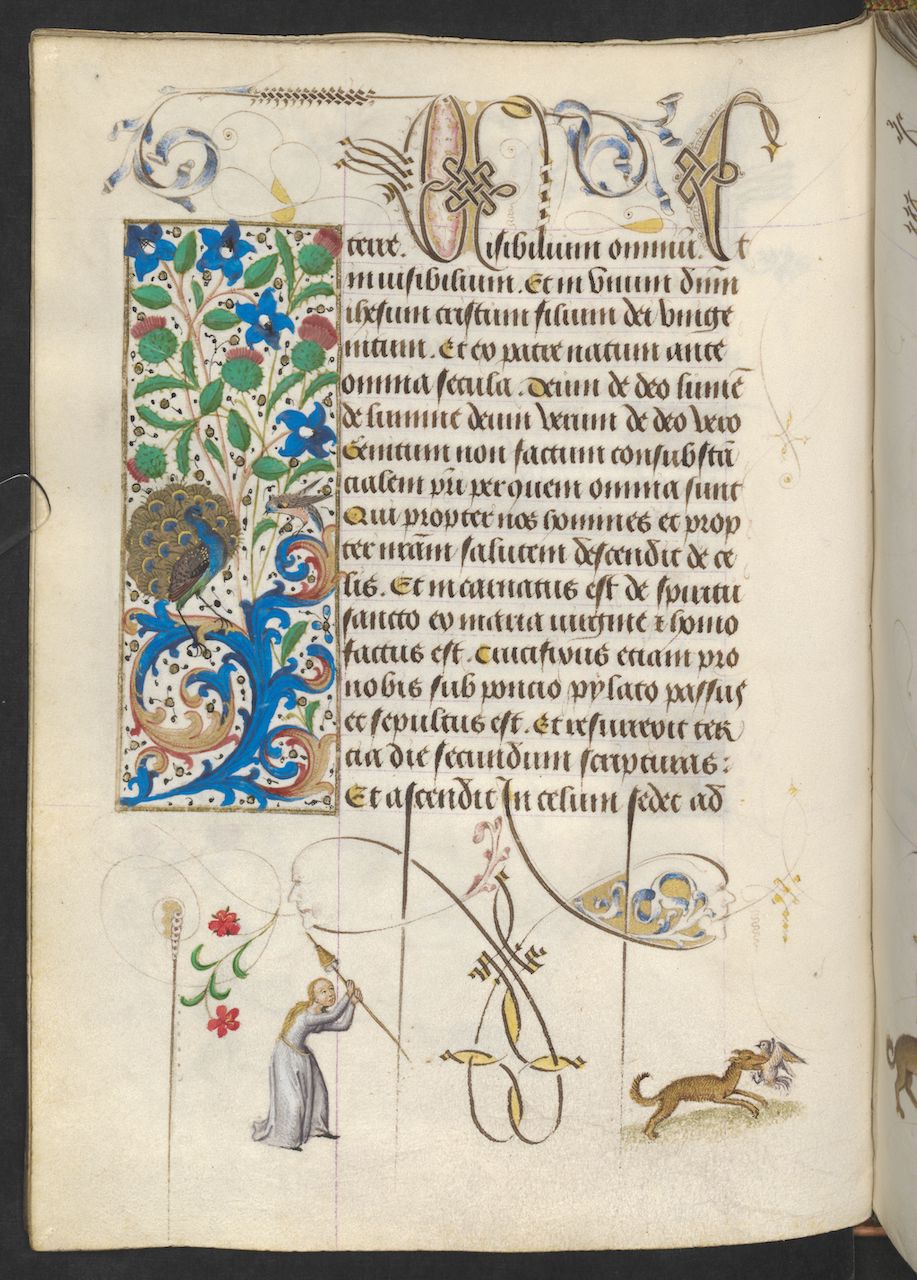 terre. Visibilium omniū. Et
inuisibilium. Et in vnum dnm̄
ihesum cristum filium dei vnige
nitum. Et ex patre natum ante
omnia secula. Deum de deo lumē
de lumine deum verum de deo vero
Genitum non factum consubstā
cialem pr̄i per quem omnia sunt
Qui propter nos homines et prop
ter nr̄am salutem descendit de ce
lis. Et incarnatus est de spiritu
sancto ex maria uirgine ⁊ homo
factus est. Crucifixus etiam pro
nobis sub poncio pylato passus
et sepultus est. Et resurrexit ter
cia die secundum scripturas:
Et ascendit In celum sedet ad